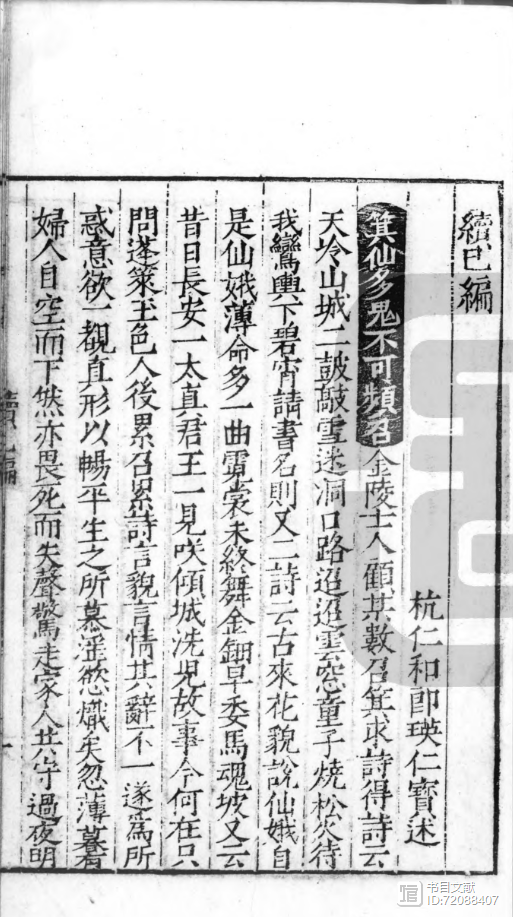 續巳編
杭仁和郎瑛仁寶述
箕仙多鬼不可頻召金陵士人顧某數召箕求詩得詩云
天冷山城二鼓敲雪迷洞口路迢迢雲窓童子燒松火待
我鸞輿下碧宵請書名則又二詩云古來花貌說仙娥自
是仙娥薄命多一曲霓裳未終舞金鈿早委馬魂坡又云
昔日長安一太真君王一見咲傾城洗兒故事今何在只
問蓬萊玉色人後累召累詩言貌言情其辭不一遂爲所
惑意欲一覩真形以暢平生之所慕滛慾熾矣忽薄暮有
婦人自空而下然亦畏死而失聲驚走家人共守過夜明
續巳編
一
书目文献
ID:72088407